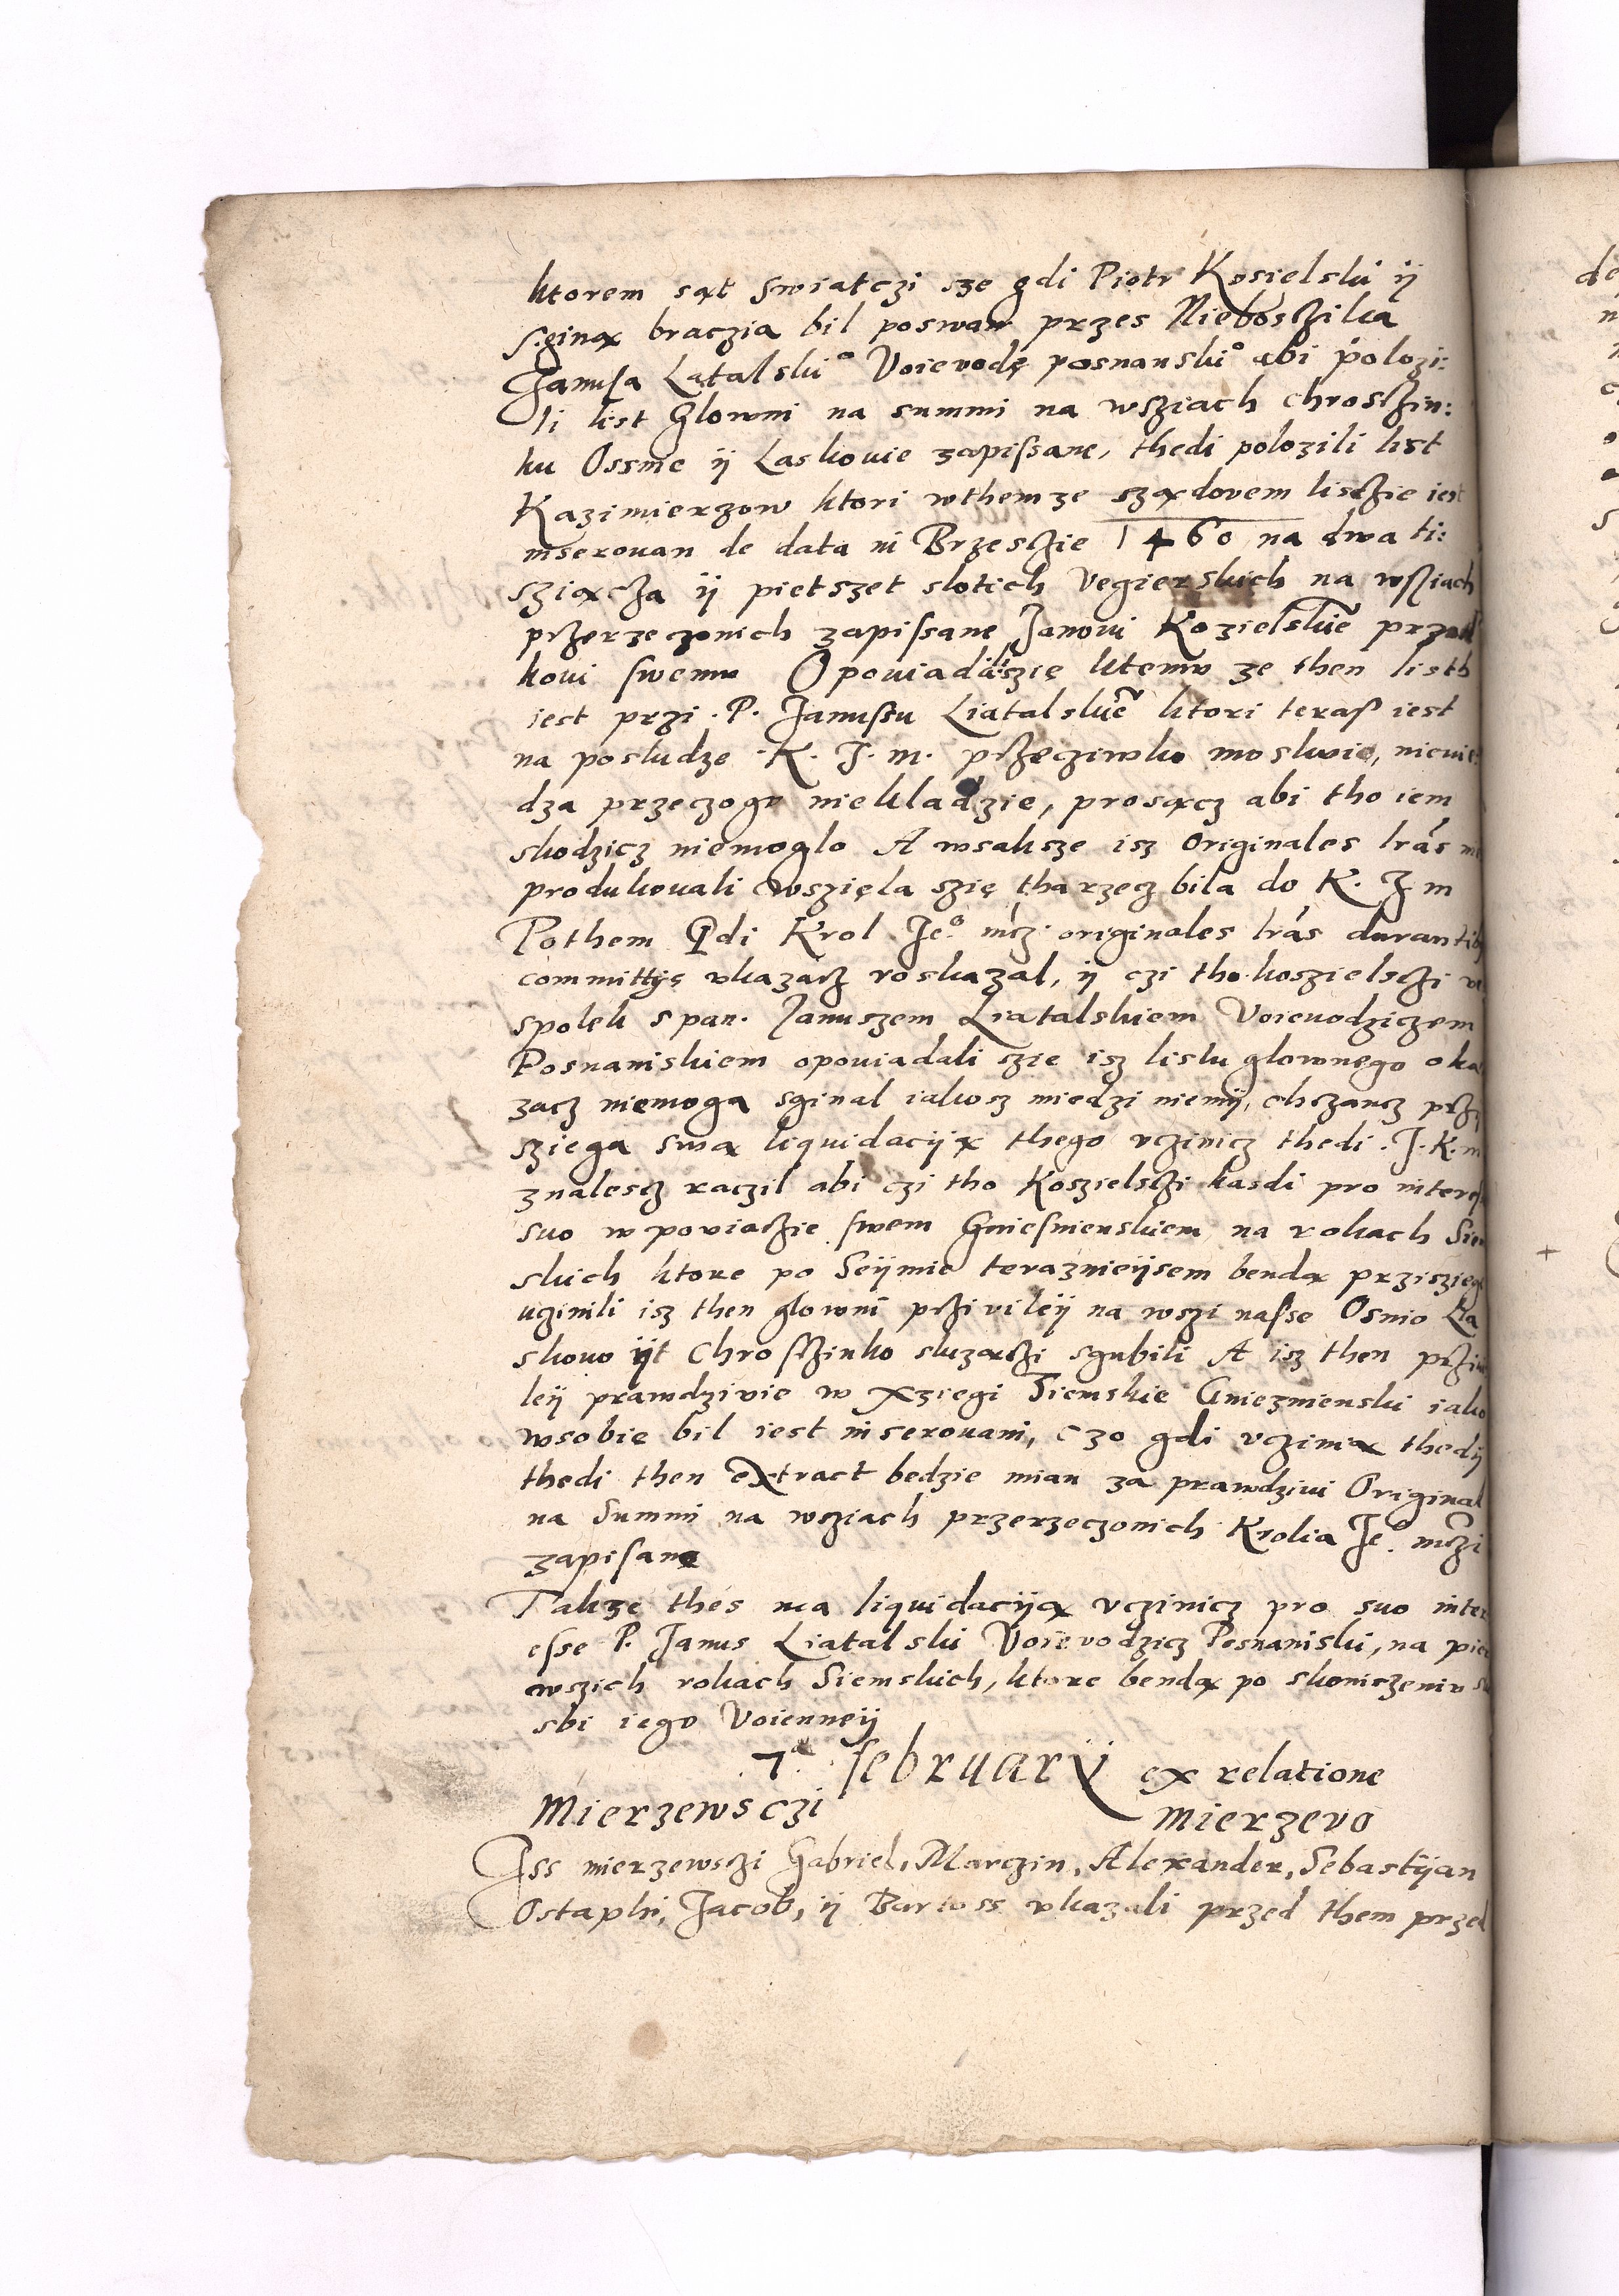 ktorem sąt swiatczi sze gdi Piotr Kosielski ij
s.giną braczia bil poswan przes Nieboszczika
Janusa Latalski° Voievodę posnanski° abi polozi:
li list Glowni na summi na wsziach chrosczin:
ku Ossnie ij Laskouie zapissane, thedi polozili list
Kazimierzow ktori wthemze sządovem lisczie iest
inserouan de data in Brzesczie 1460 na dwa ti:
sziącza ij pietszet slotich Vegierskich na wsziach
przerzeczonich zapissane Janoui Kozielskie przod
koui swemu Opouiadaliszię ktemu ze then listh
iest przi . P. Janussu Liatalskie ktori teras iest
na posludze K. J. m. przecziwko moskwie, nieuie:
dza przeczogo niekladzie, prosącz abi tho iem
skodzicz niemoglo A wsaksze isz originales lras
produkouali wszięla szię tha rzecz bila do K. J m
Pothem Gdi Krol Je° mcz originales lras durantib
committijs ukazacz roskazal, ij czi tho koszielsczi
spolek s pan. Januszem Liatalskiem Voieuodziczem
Posnaniskiem opouiadali szie isz listu glownego oka
zacz niemoga sginal iakosz miedzi niemij, chczancz prz
sziega swa liquidacijją thego uczinicz thedi . J. K. m
znalescz raczil abi czi tho Koszielsczi kasdi pro interess
suo w poviaczie swem Gniesnienskiem na rokach Siem
skich ktore po Seijmie teraznieijsem bendą przisziegę
uczinili isz then glowni prziuileij na wszi nasse Osnio Lia
skouo ijt Chrosczinko sluzączi sgubili A isz then prziui
leij prawdziwie w xziegi Siemskie Gniezninski iako
wsobie bil iest inserouani, czo gdi uczinią thedij
thedi then extract bedzie mian za prawdziwi Original
na Summi na wsziach przerzeczonich Krolia Je°. mczi
zapisane
Takze thes ma liquidacijją uczinicz pro suo inter
esse P. Janus Liatalski Voievodzicz Posnaniski, na pier
wszich rokach Siemskich, ktore bendą po skonczeniu
sbi iego Voienneij
7ª februarij ex relatione
Mierzewsczi Mierzevo
Iss mierzewsczi Gabriel, Marczin, Alexander, Sebastijan
Ostaphi, Jacob, ij Bartoss ukazali przed them przed